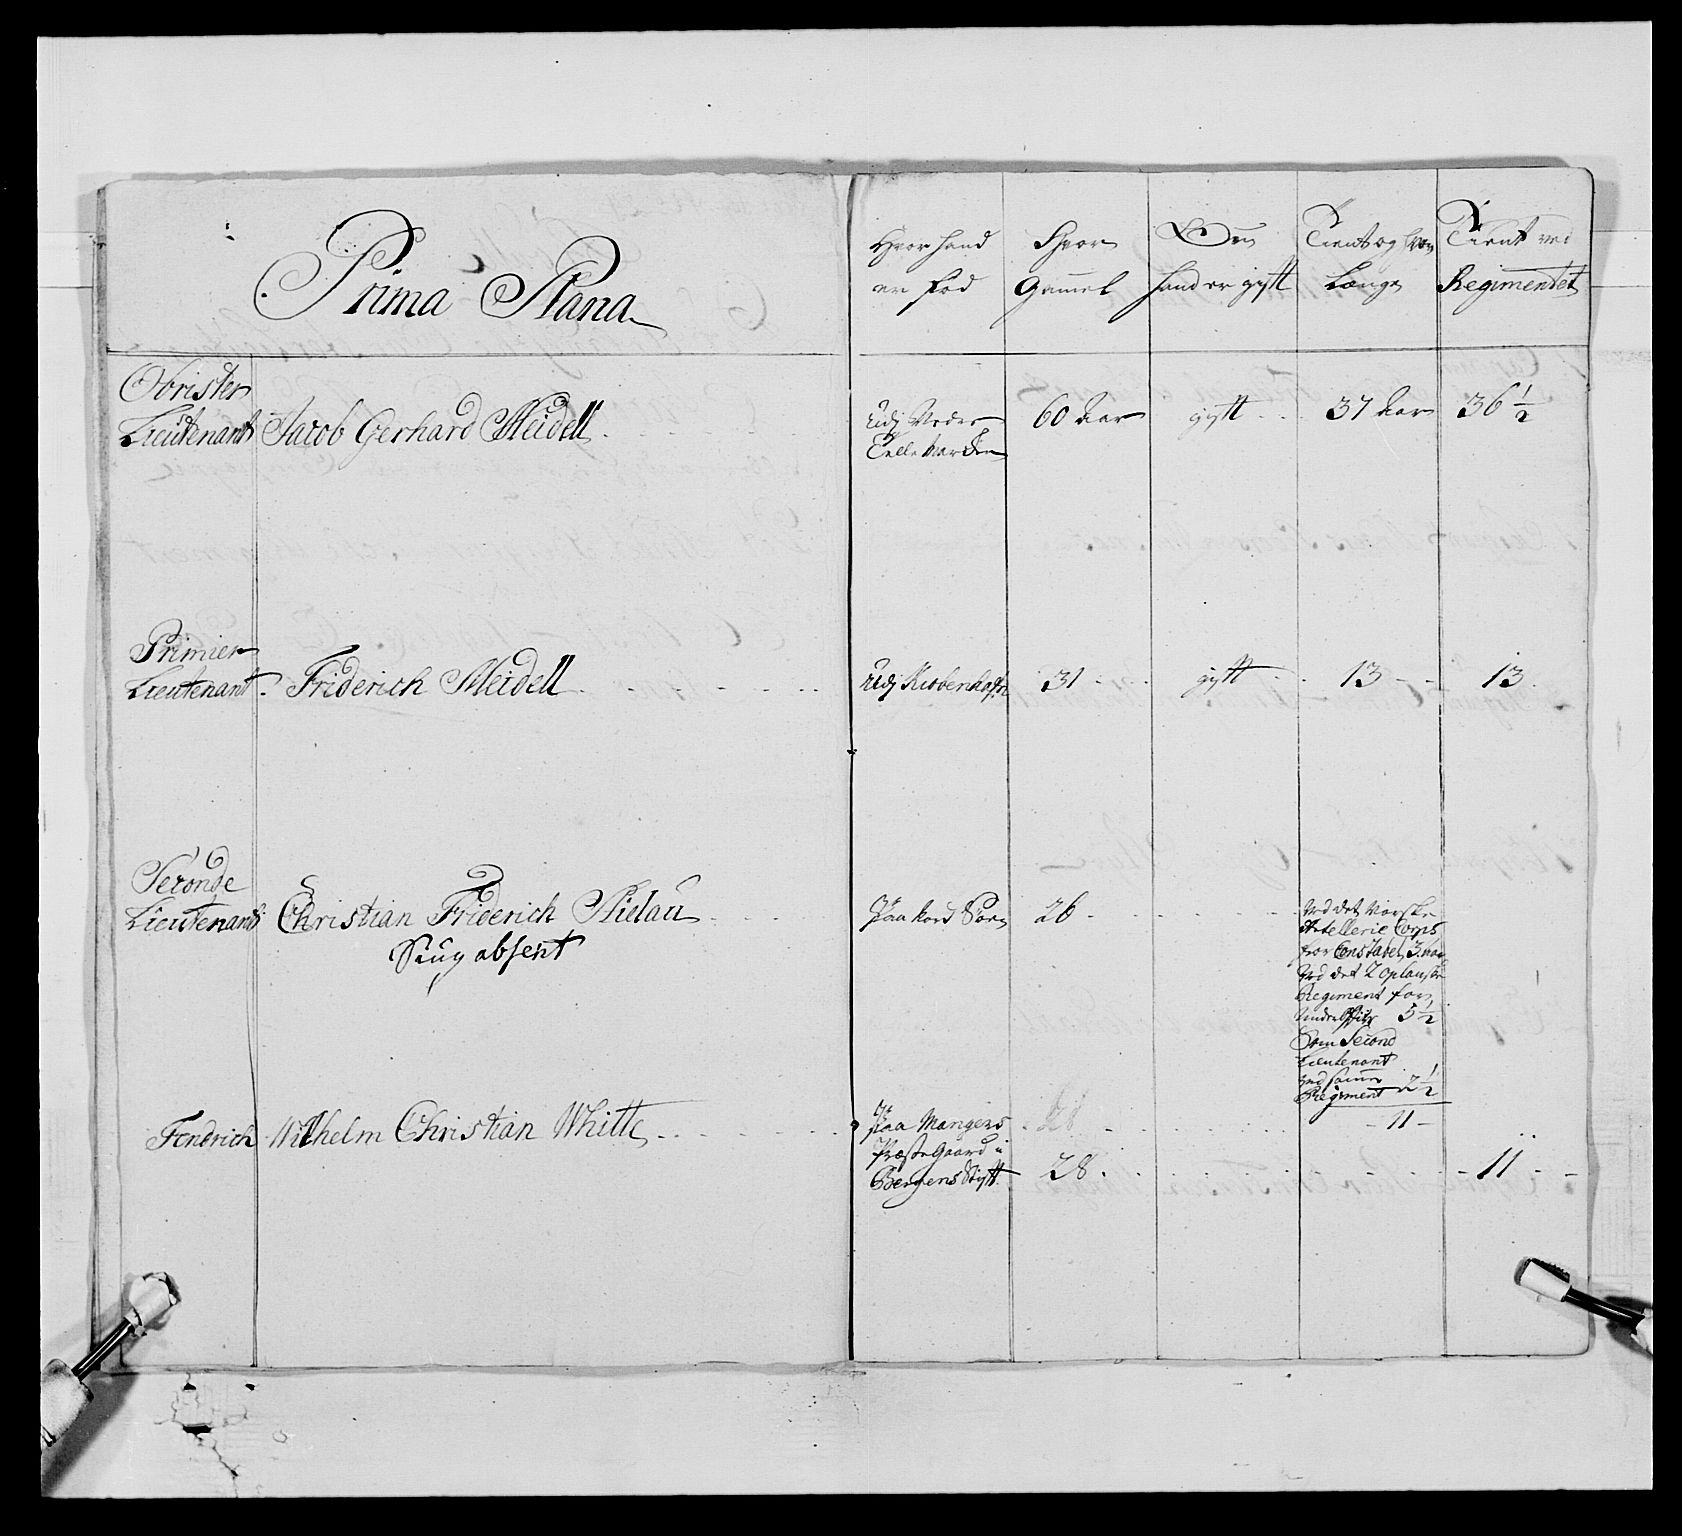 Prima Plana
Hvor hand er fød
Hvor Gammel
Om hand er gift
Tient og hvor Længe
Tient ved Regimentet
Obrister
Lieutenant Jacob Gerhard Meidell
Udj Nedre 60 Aar gift 37 Aar 36 1/2
Tellemarken
Primier
Lieutenant Friderich Meidell
Udj Kiøbenhafn 31 gift 13 13
Seconde
Lieutenant Christian Friderich Nielau
Siug absent
Paa 26
Ved det Norske
Artellerie Corps
for Constabel 3 aar
Ved det 2 oplanske
Regiment for
Under 5 1/2
Som Second
Lieutenant
ved samme 2 1/2
Regiment
11
Fendrich Wilhelm Christian Whitte
Paa Mangers 28
Præste Gaard i
Bergens Stift 28 11